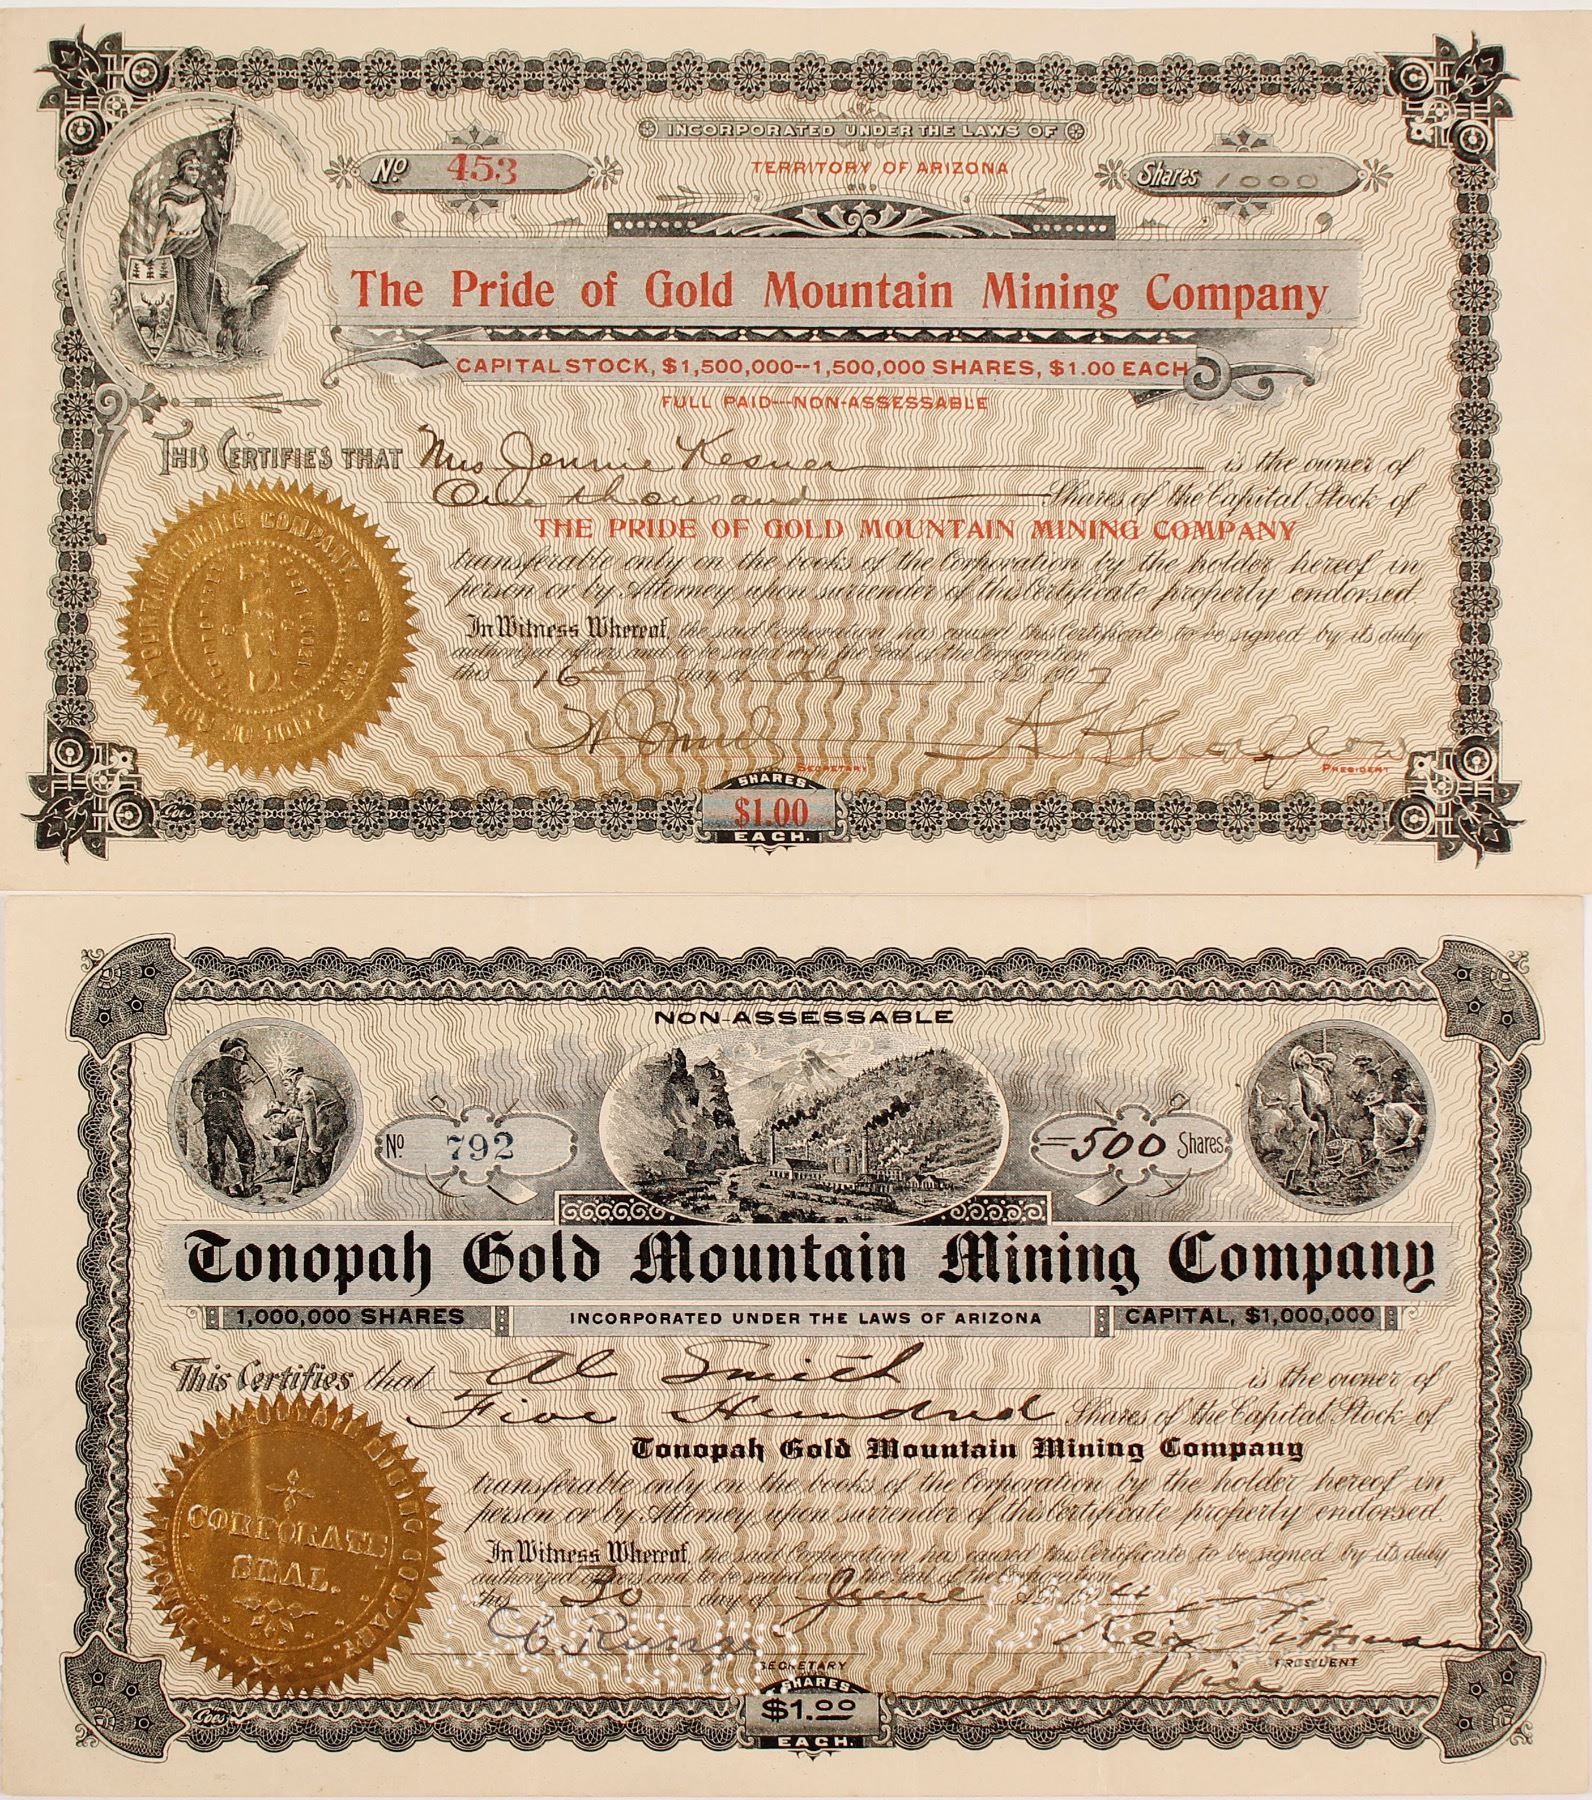 INCORPORATED UNDER THE LAWS OF
TERRITORY OF ARIZONA
No. 453
Shares 1000
The Pride of Gold Mountain Mining Company
CAPITAL STOCK, $1,500,000--1,500,000 SHARES, $1.00 EACH
FULL PAID--NON-ASSESSABLE
THIS CERTIFIES THAT Mrs Jennie Kesner is the owner of
One thousand Shares of the Capital Stock of
THE PRIDE OF GOLD MOUNTAIN MINING COMPANY
transferable only on the books of the Corporation by the holder hereof in
person or by Attorney upon surrender of this Certificate properly endorsed.
In Witness Whereof, the said Corporation has caused this Certificate to be signed by its duly
authorized officers and to be sealed with the Seal of the Corporation
this 16th day of A.D. 1907
SECRETARY
PRESIDENT
SHARES
$1.00
EACH.
Goes
NON-ASSESSABLE
No. 792
500 Shares
Tonopah Gold Mountain Mining Company
1,000,000 SHARES
INCORPORATED UNDER THE LAWS OF ARIZONA
CAPITAL, $1,000,000
This Certifies that Al Smith is the owner of
Five Hundred Shares of the Capital Stock of
Tonopah Gold Mountain Mining Company
transferable only on the books of the Corporation by the holder hereof in
person or by Attorney upon surrender of this Certificate properly endorsed.
In Witness Whereof, the said Corporation has caused this Certificate to be signed by its duly
authorized officers and to be sealed with the Seal of the Corporation
this 30 day of June A.D.
C Runge
SECRETARY
PRESIDENT
Vice
CORPORATE
SEAL.
SHARES
$1.00
EACH.
Goes